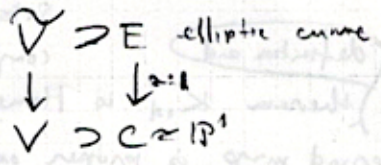 Ṽ ⊃ E elliptic curve
↓ ↓ 2:1
V ⊃ C ≃ ℙ¹